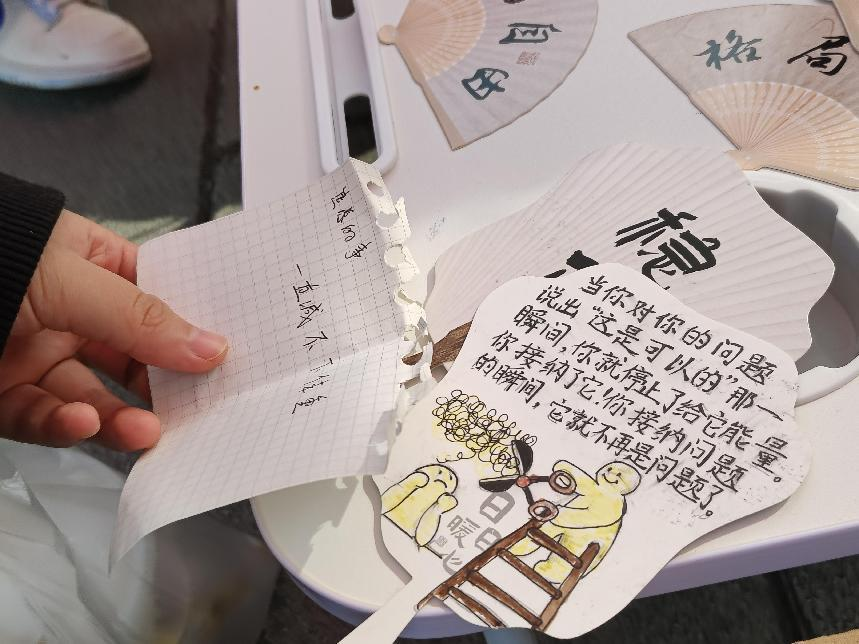 自由
格局
稳
的事
一直减不下体重
当你对你的问题
说出“这是可以的”那一
瞬间,你就停止了给它能量。
你接纳了它,你接纳问题
的瞬间,它就不再是问题了。
日日
暖